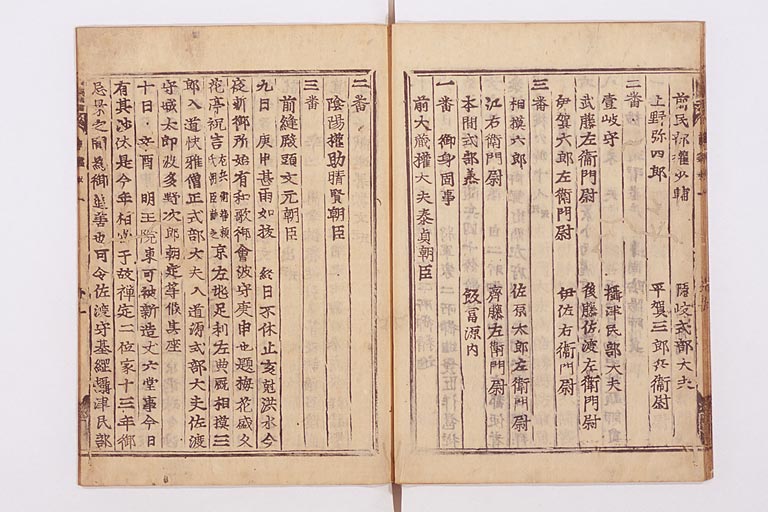 前民部權少輔 隱岐式部大夫
上野弥四郎 平賀三郎兵衞尉
二番
壹岐守 攝津民部大夫
武藤左衞門尉 後藤佐渡左衞門尉
伊賀六郎左衞門尉 伊佐右衞門尉
三番
相摸六郎 佐原太郎左衞門尉
江右衞門尉 齊藤左衞門尉
本間式部 飯冨源内
一番 御身固事
前大藏權大夫泰貞朝臣
二番
陰陽權助晴賢朝臣
三番
前縫殿頭文元朝臣
九日 庚申甚雨如抜 終日不休止亥剋洪水今
夜新御所始有和歌御會被守庚申也題梅花盛久
花亭祝言 京左地足利左典厩相摸三
郎入道快雅僧正式部大夫入道源式部大夫佐渡
守城太郎波多野次郎朝定等候其座
十日 辛酉 明王院東可被新造丈六堂事今日
有其沙汰是今年相當于故禪定二位家十三年御
忌景之間爲御追善也可令佐渡守基經攝津民部